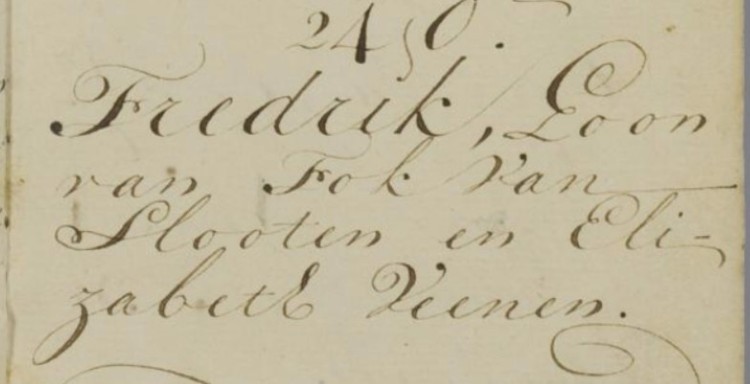 24 O.
Fredrik, Zoon
van Fok Van
Slooten en Eli-
zabeth Veenen.